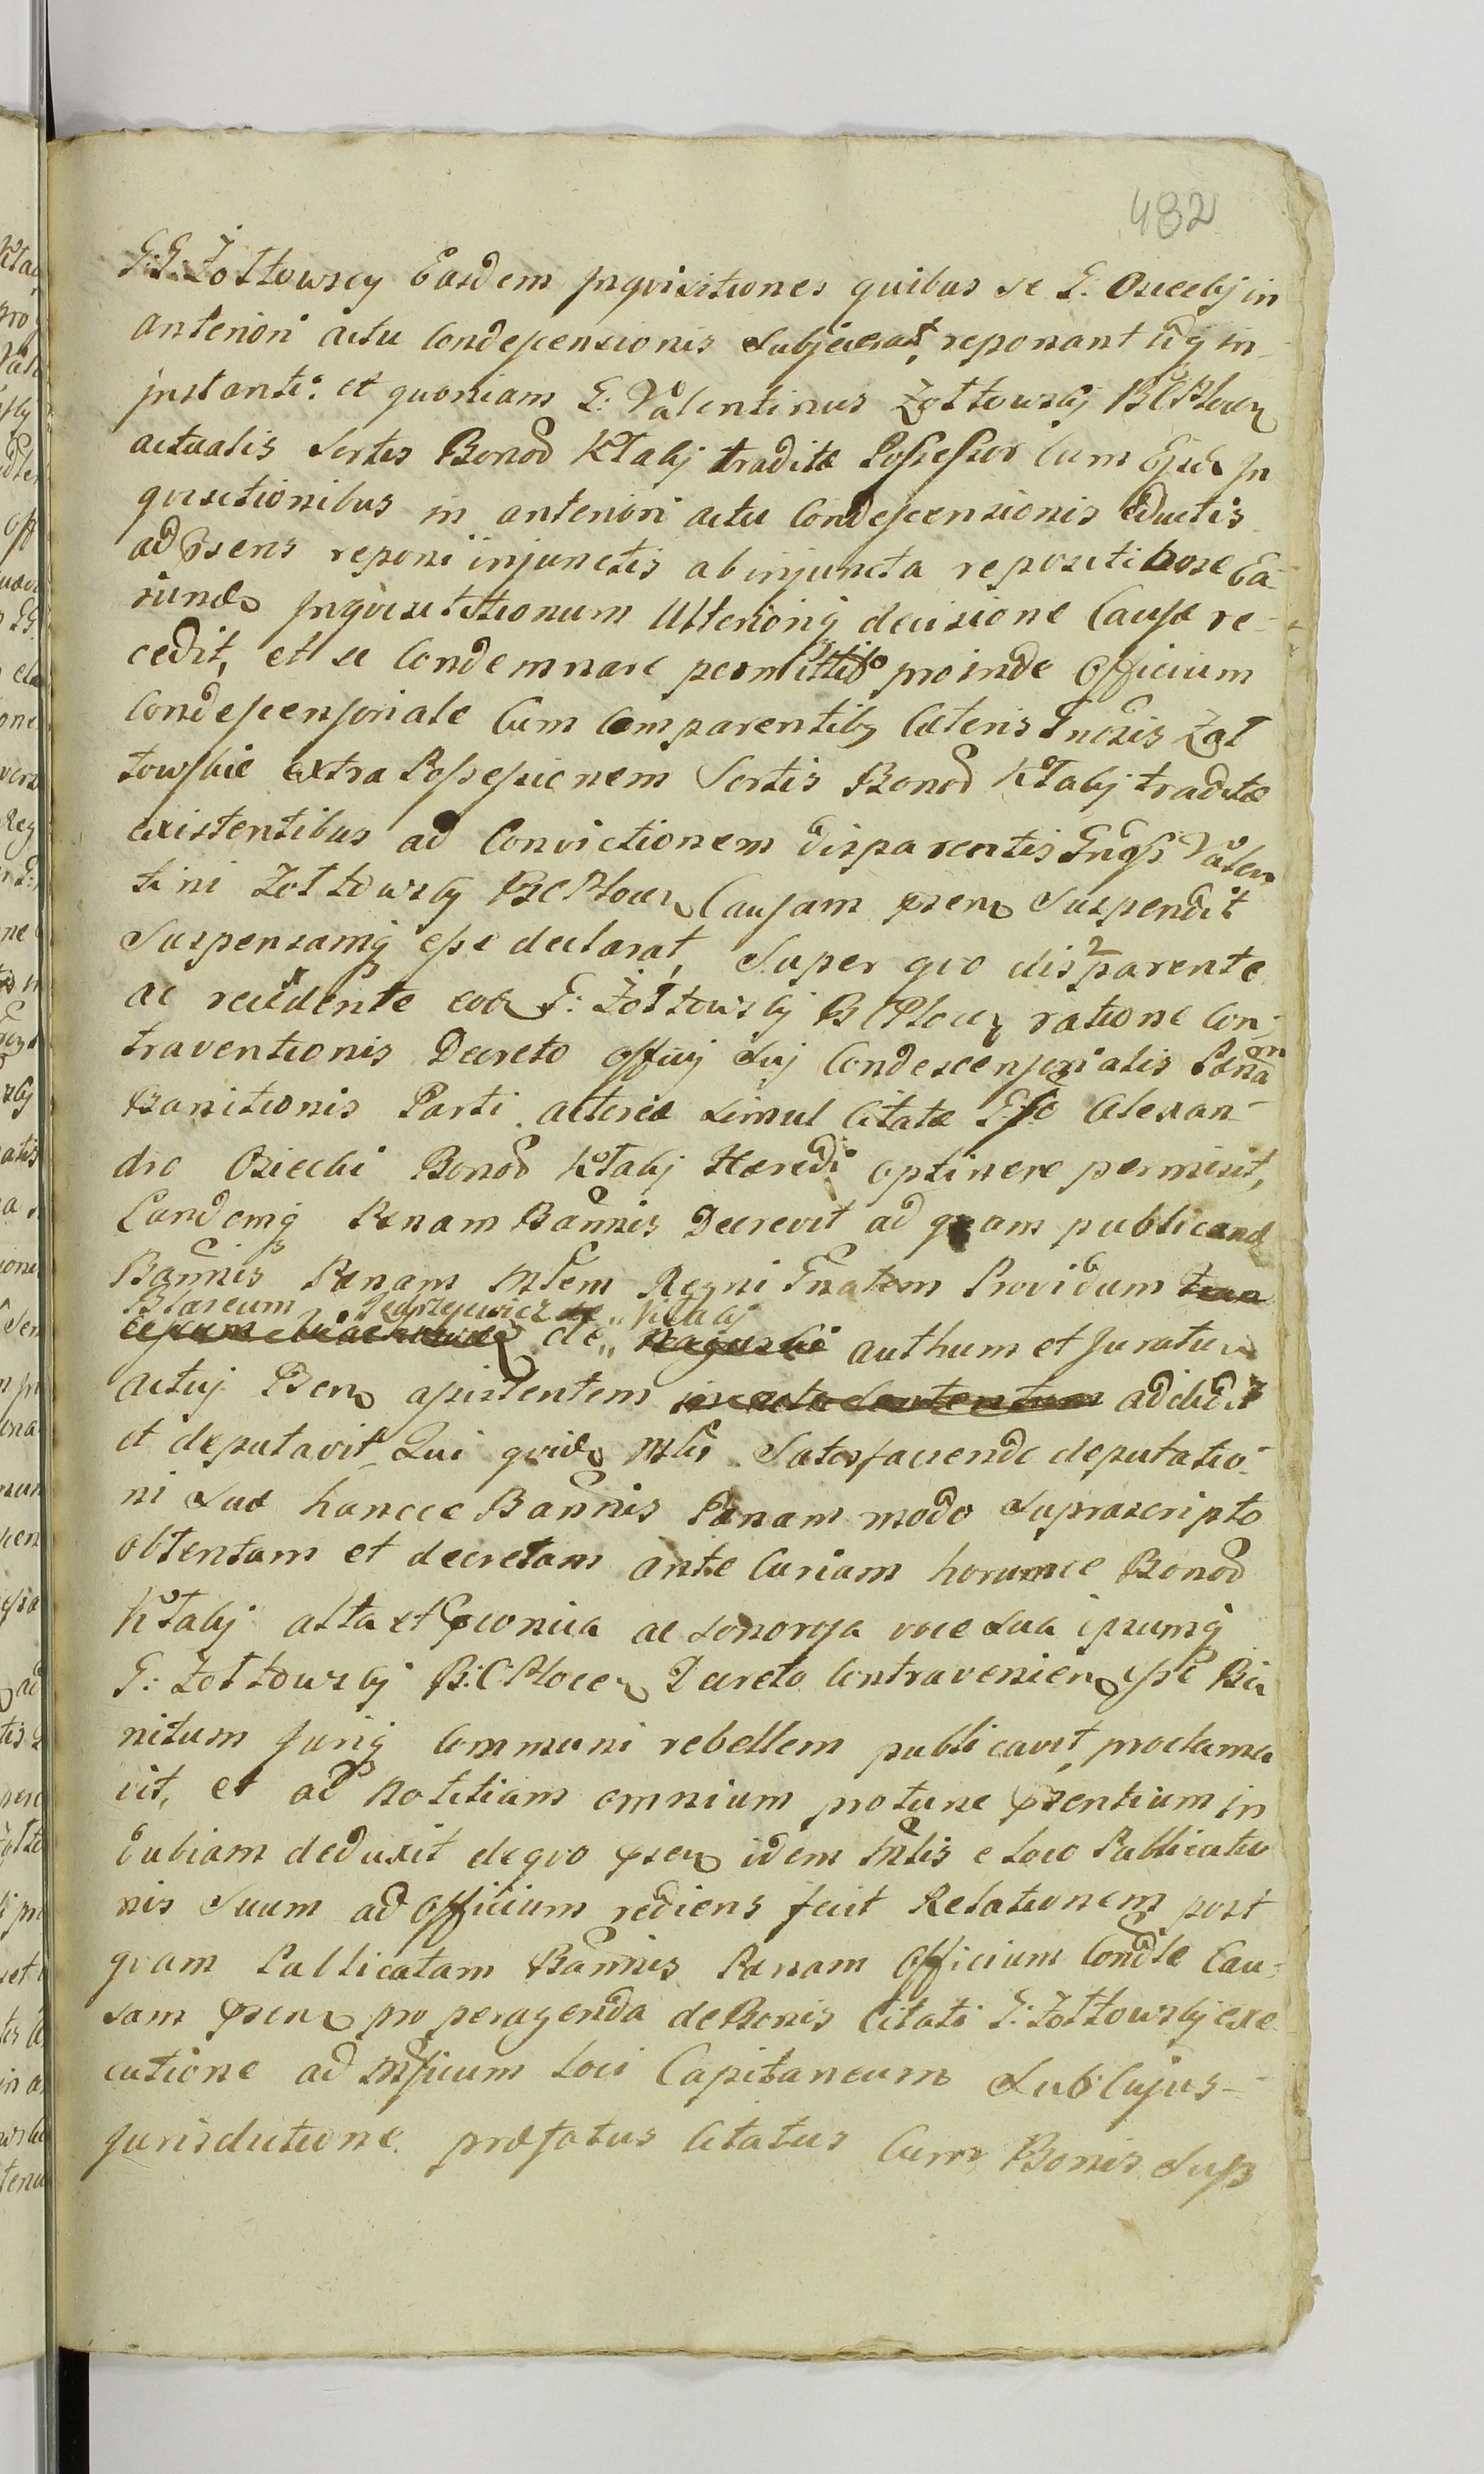 482
G: G: Żołtowscy Easdem Inquisitiones quibus se G. Osiecki in
anteriori actu Condescensionis subjecerat, reponant usq in
instanti: et quoniam G: Valentinus Zołtowski BCPlocen
actualis Sortis Bonoȓ Kłaki traditæ Possessor Cum Ejusd In
quisitionibus in anteriori actu Condescensionis eductis
ad Psens reponi injunctis ab injuncta repositione Ea-
rund Inquisititionum Ulterioriq decisione Causæ re-
cedit, et se Condemnare permittit proinde Officium
Condescensoriale Cum Comparentibq Cæteris Gnosis Zoł
towskie extra Possessionem Sortis Bonoȓ Kłaki traditæ
existentibus ad Convictionem disparentis Gnosi Valen
tini Zołtowski BCPlocen Causam psen Suspendit
Suspensamq esse declarat, Super quo disparente
ac recedente eod G: Żołtowski BCPlocen ratione Con-
traventionis Decreto officij sui Condescensorialis Pænam
Banitionis Parti actoreæ simul Citatæ Gso Alexan-
dro Osiecki Bonoȓ Kłaki Hæredi optinere permisit,
Eandemq Pænam Bannis Decrevit ad quam publicand
Bannis Pænam Mlem Regni Gnalem Providum
Blareum Jędrzejewicz de Kłaki
de authum et Juratum
actuj Psen assistentem addidit
et deputavit Qui quid Mlis Satisfaciendo deputatio-
ni suæ hancce Bannis Pænam modo suprascripto
obtentam et decretam ante Curiam horumce Bonoȓ
Kłaki alta et pconica ac sonorosa voce sua ipsumq
G: Zołtowski B:C:Plocen Decreto Contravenien esse Ba
nitum Juriq Communi rebellem publicavit, proclama
vit, et ad Notitiam omnium protunc psentium in
dubiam deduxit de quo psen idem Mlis e Loco Publicatio
nis Suum ad Officium rediens fecit Relationem post
quam Publicatam Bannis Pænam Officium Condle Cau-
sam psen pro peragenda de Bonis Citati G: Zołtowski exe
cutione ad Mficum Loci Capitaneum sub Cujus-
Jurisdictione præfatus Citatus Cum Bonis suis